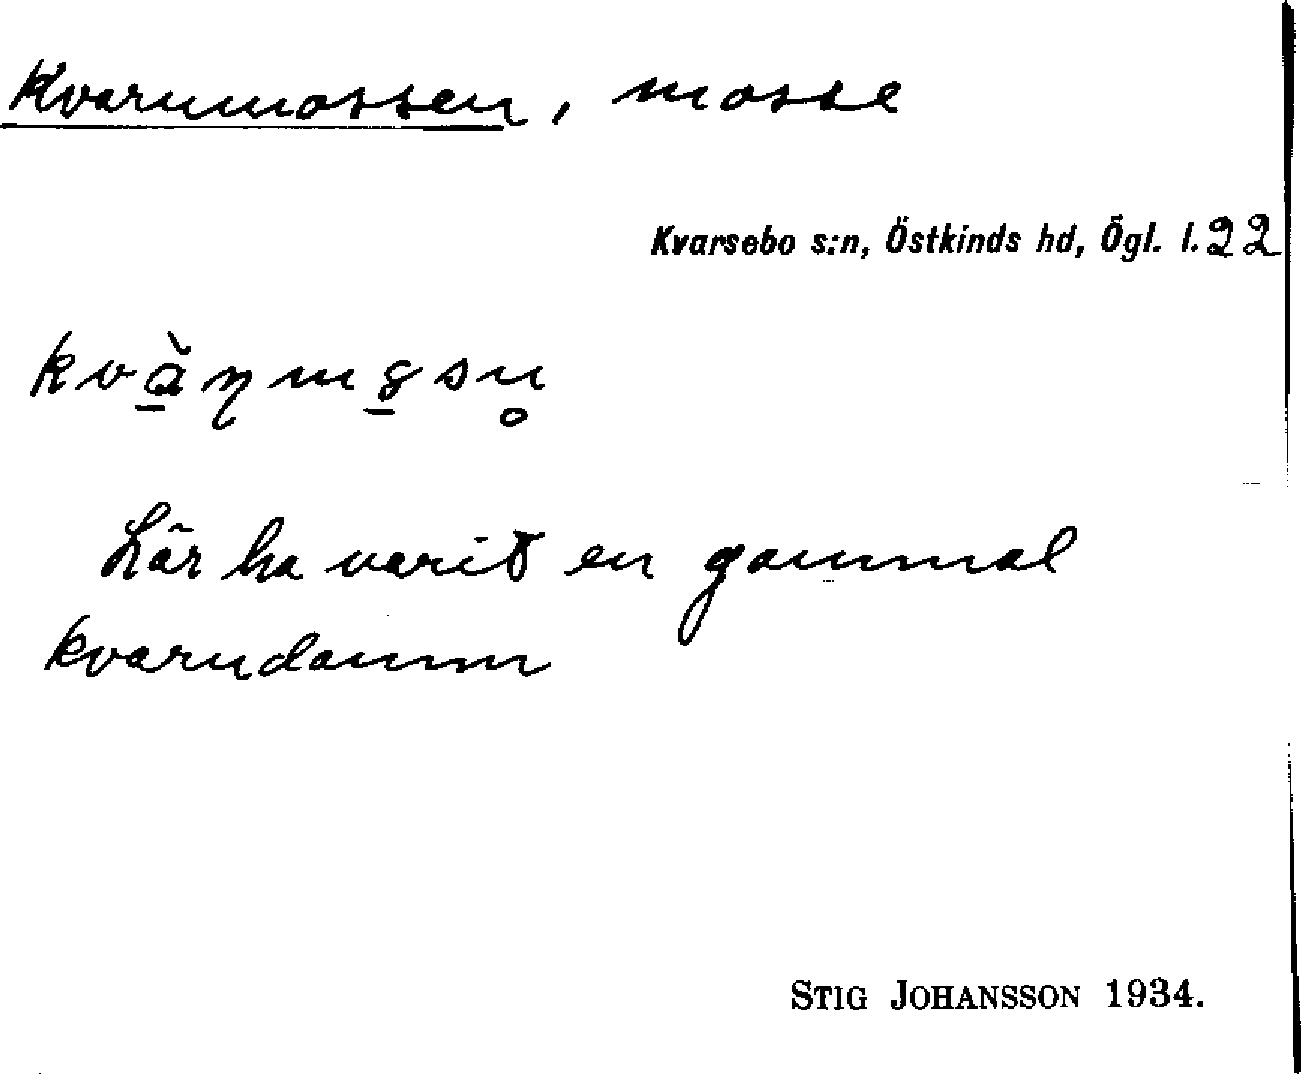 Kvarnmossen, mosse
Kvarsebo s:n, Östkinds hd, Ögl. l. 22
Lär ha varit en gammal
kvarndamm
STIG JOHANSSON 1934.